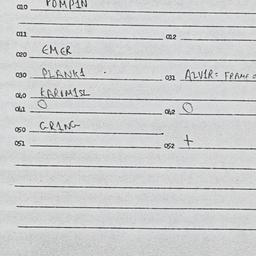 010 POMP1N
011 012
020 EMER
030 PLANK1 031 A2V1R= FRAME
040 EARUM1SL
041 O 042 O
050 GR1NG
051 052 +